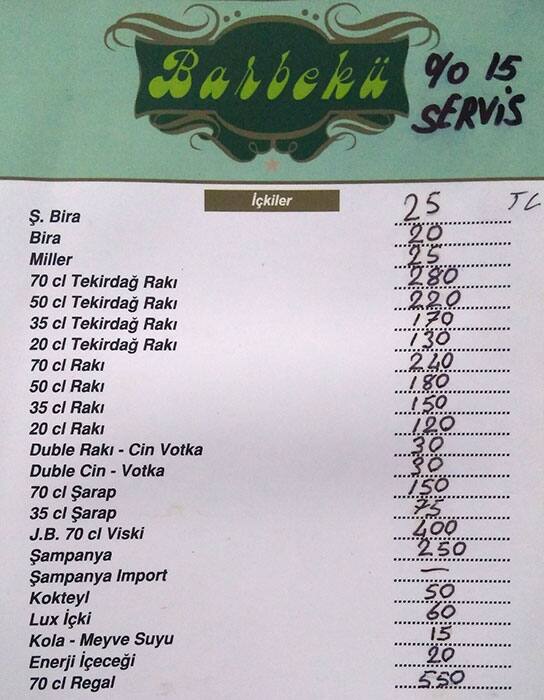 Barbekü
%0 15
SERVİS
İçkiler
TL
Ş. Bira 25
Bira 20
Miller 25
70 cl Tekirdağ Rakı 280
50 cl Tekirdağ Rakı 220
35 cl Tekirdağ Rakı 170
20 cl Tekirdağ Rakı 130
70 cl Rakı 240
50 cl Rakı 180
35 cl Rakı 150
20 cl Rakı 120
Duble Rakı - Cin Votka 30
Duble Cin - Votka 30
70 cl Şarap 150
35 cl Şarap 75
J.B. 70 cl Viski 400
Şampanya 250
Şampanya Import —
Kokteyl 50
Lux İçki 60
Kola - Meyve Suyu 15
Enerji İçeceği 20
70 cl Regal 550